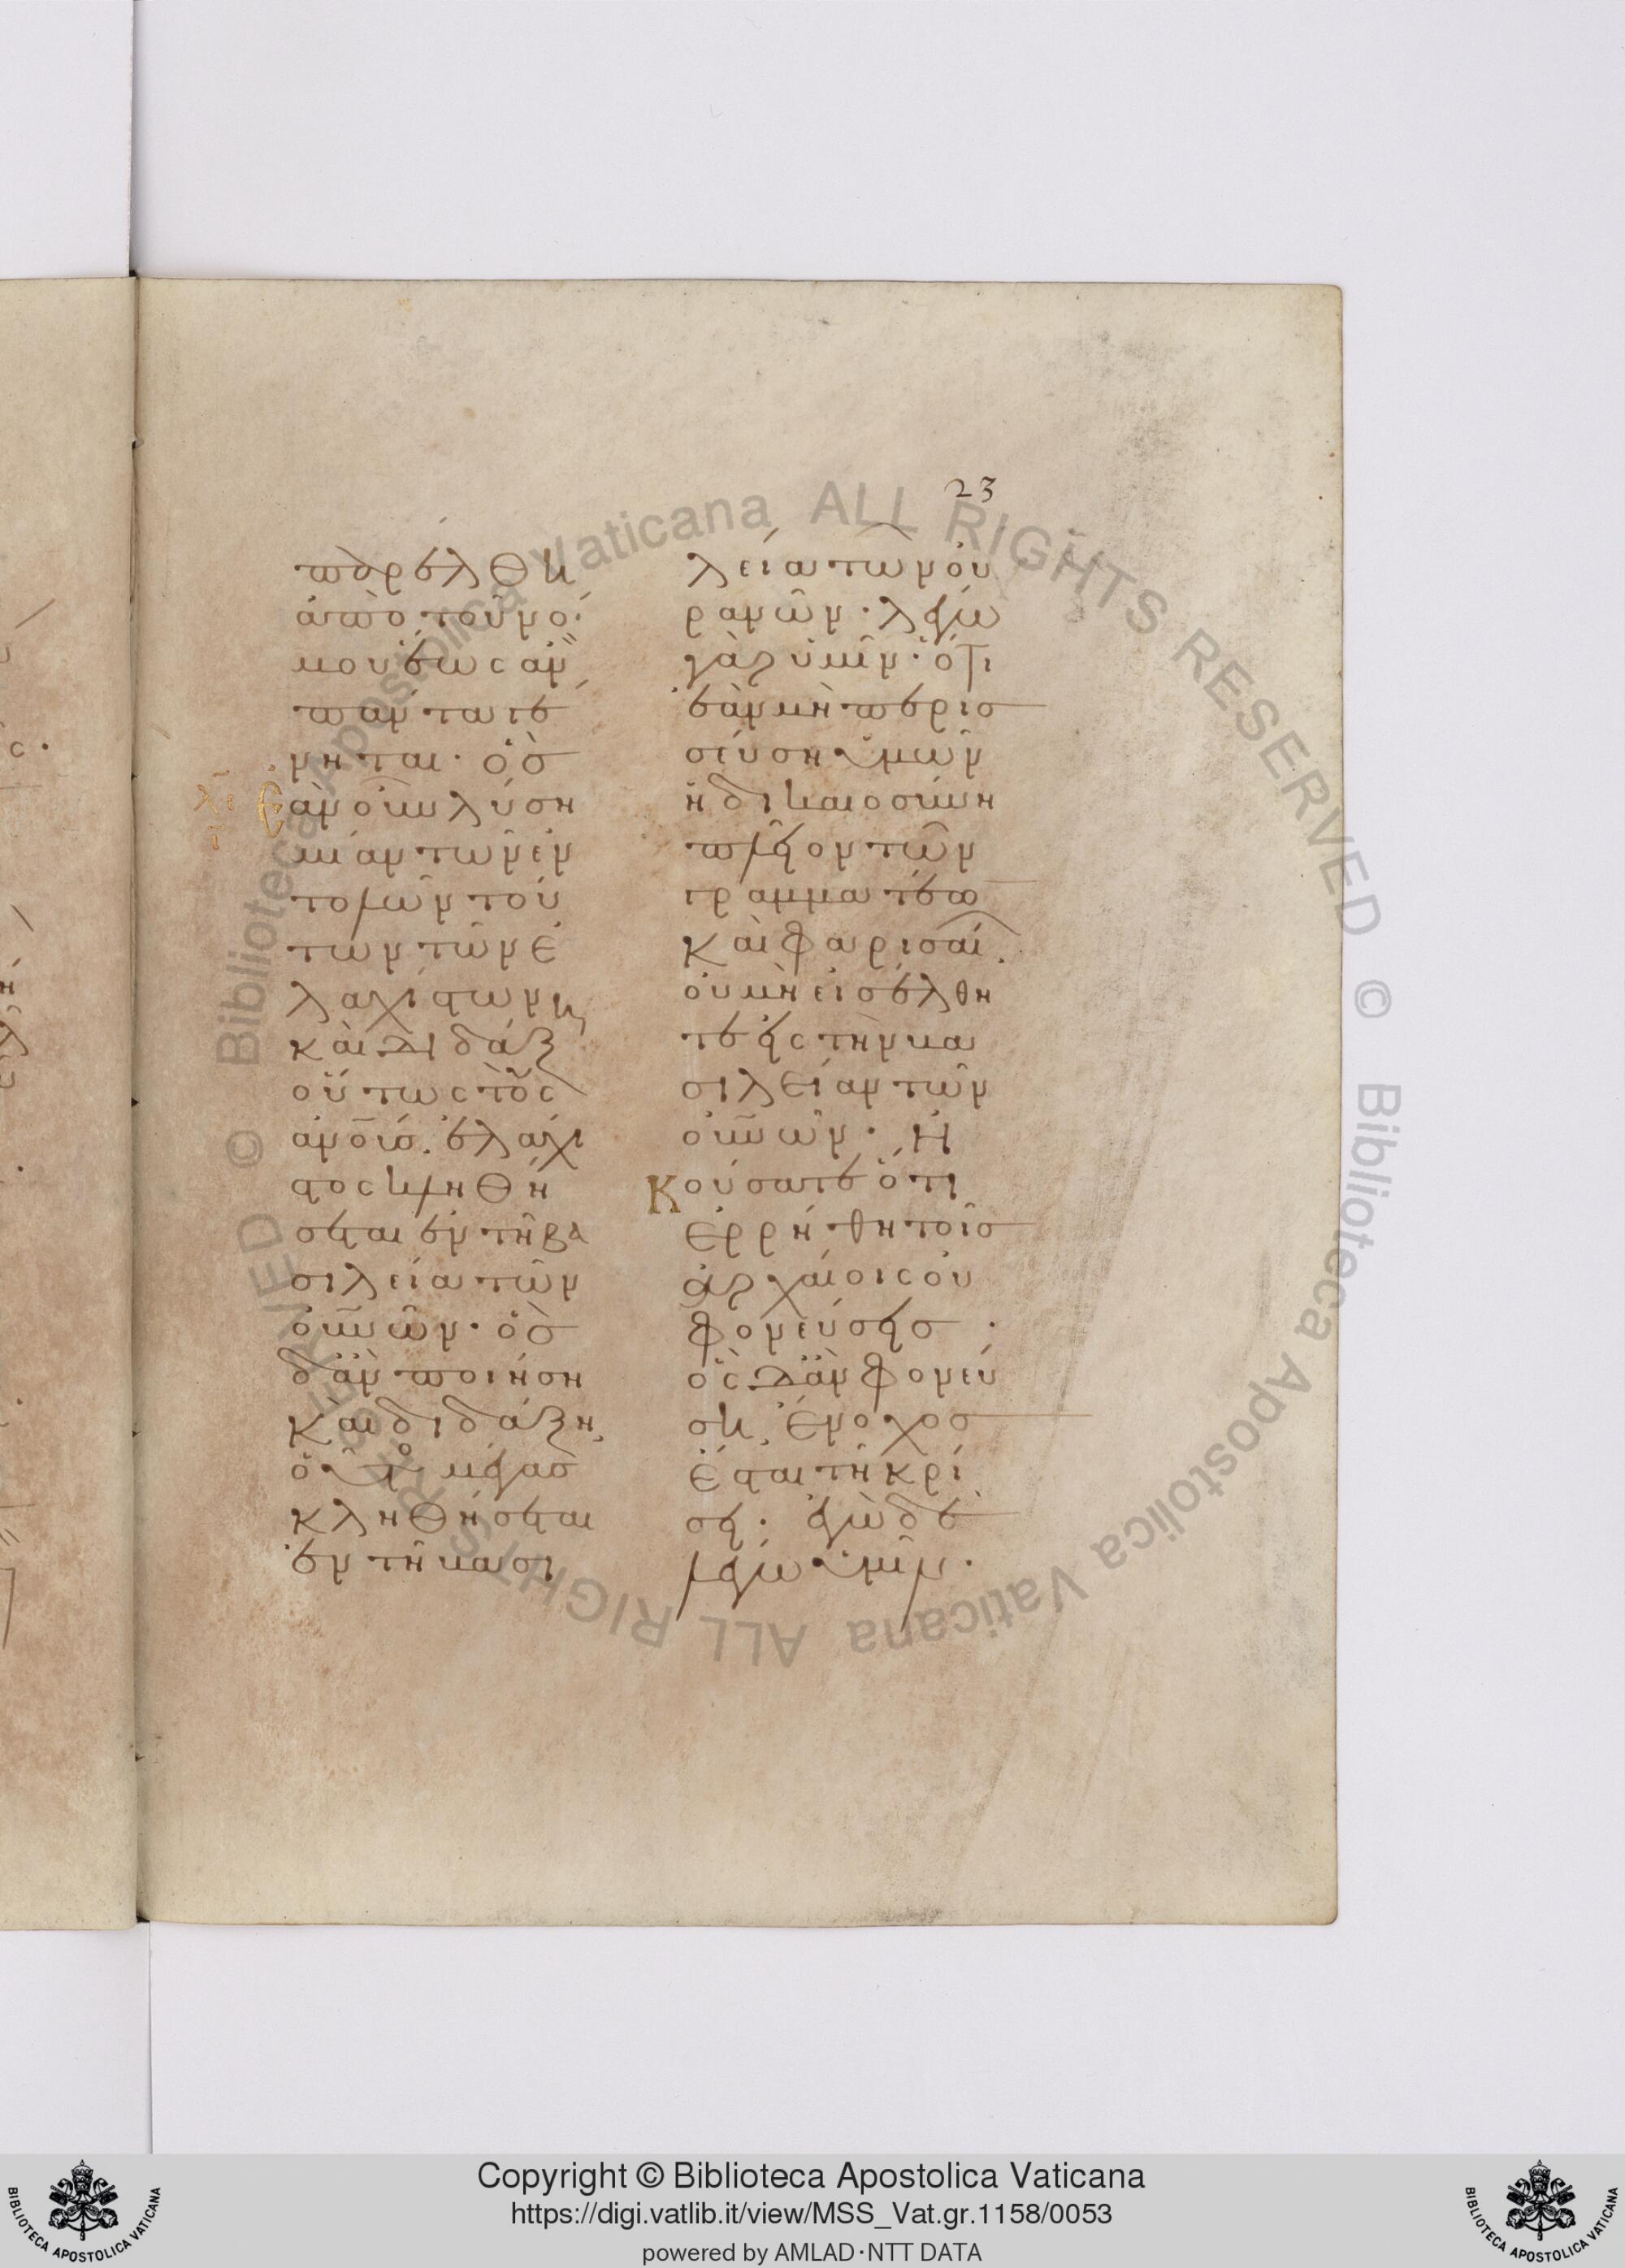 23
παρέλθη
ἀπὸ τοῦ νό
μου ἕως ἂν
πάντα γέ
νηται· ὃσ
ἐὰν οὖν λύση
μίαν τῶν ἐν
τολῶν τού
των τῶν ἐ
λαχίστων κ
καὶ διδάξ
οὕτως τοὺς
ἀνοισ. ἐλάχι
στος κληθή
σεται ἐν τῆ βα
σιλεία τῶν
οὐνῶν· ὃσ
δ' ἂν ποιήση
καὶ διδάξη,
οὗτο μέγασ
κληθήσεται
ἐν τῆ βασι
λεία τῶν οὐ
ρανῶν· λέγω
γὰρ ὑμῖν· ὅτι
ἐὰν μὴ περισ
σεύση ὑμῶν
ἡ δικαιοσύνη
πλεῖον τῶν
γραμματέω
καὶ φαρισαί.
οὐ μὴ εἰσέλθη
τε εἰς τὴν βα
σιλείαν τῶν
οὐνῶν· Ἠ
κούσατε ὅτι
ἐρρήθη τοῖσ
ἀρχαίοις οὐ
φονεύσεισ·
ὃς δ' ἂν φονεύ
ση, ἔνοχοσ
ἔσται τῆ κρί
σει· ἐγὼ δὲ
λέγω ὑμῖν·
Biblioteca Apostolica Vaticana ALL RIGHTS RESERVED ©
Biblioteca Apostolica Vaticana ALL RIGHTS RESERVED ©
Copyright © Biblioteca Apostolica Vaticana
https://digi.vatlib.it/view/MSS_Vat.gr.1158/0053
powered by AMLAD·NTT DATA
BIBLIOTECA APOSTOLICA VATICANA
BIBLIOTECA APOSTOLICA VATICANA